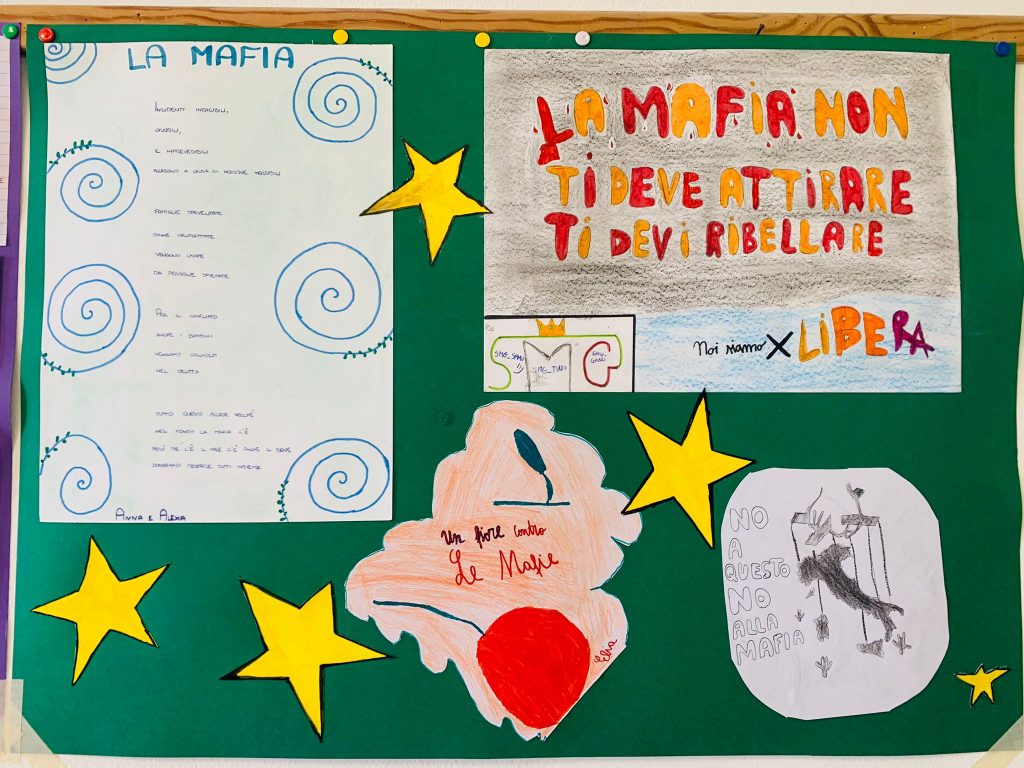 LA MAFIA
INCIDENTI INDICIBILI,
ORRIBILI,
E IMPREVEDIBILI
ACCADONO A CAUSA DI PERSONE TERRIBILI
FAMIGLIE SPAVENTATE
DONNE MALTRATTATE
VENGONO USATE
DA PERSONE SPIETATE
PER IL
ANCHE I BAMBINI
VENGONO COINVOLTI
NEL DELITTO
TUTTO QUESTO ACCADE PERCHÉ
NEL MONDO LA MAFIA C'È
PERÒ SE C'È IL MALE C'È ANCHE IL BENE
DOBBIAMO RESTARE TUTTI INSIEME
ANNA E ALEXA
LA MAFIA NON
TI DEVE ATTIRARE
TI DEVI RIBELLARE
Noi siamo X LIBERA
SMG_TINO
Un fiore contro
Le Mafie
Elia
NO
A
QUESTO
NO
ALLA
MAFIA